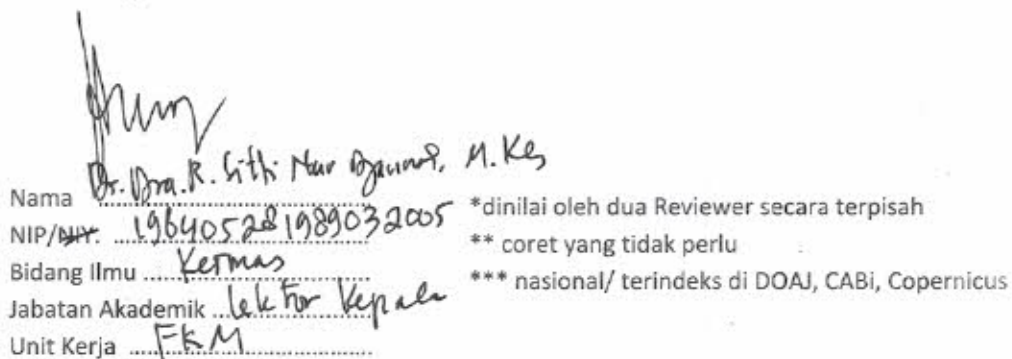 Nama Dr. Dra. R. Sitti Nur Djannah, M. Kes
NIP/NIY. 196405281989032005
Bidang Ilmu Kesmas
Jabatan Akademik Lektor Kepala
Unit Kerja FKM
*dinilai oleh dua Reviewer secara terpisah
** coret yang tidak perlu
*** nasional/ terindeks di DOAJ, CABi, Copernicus